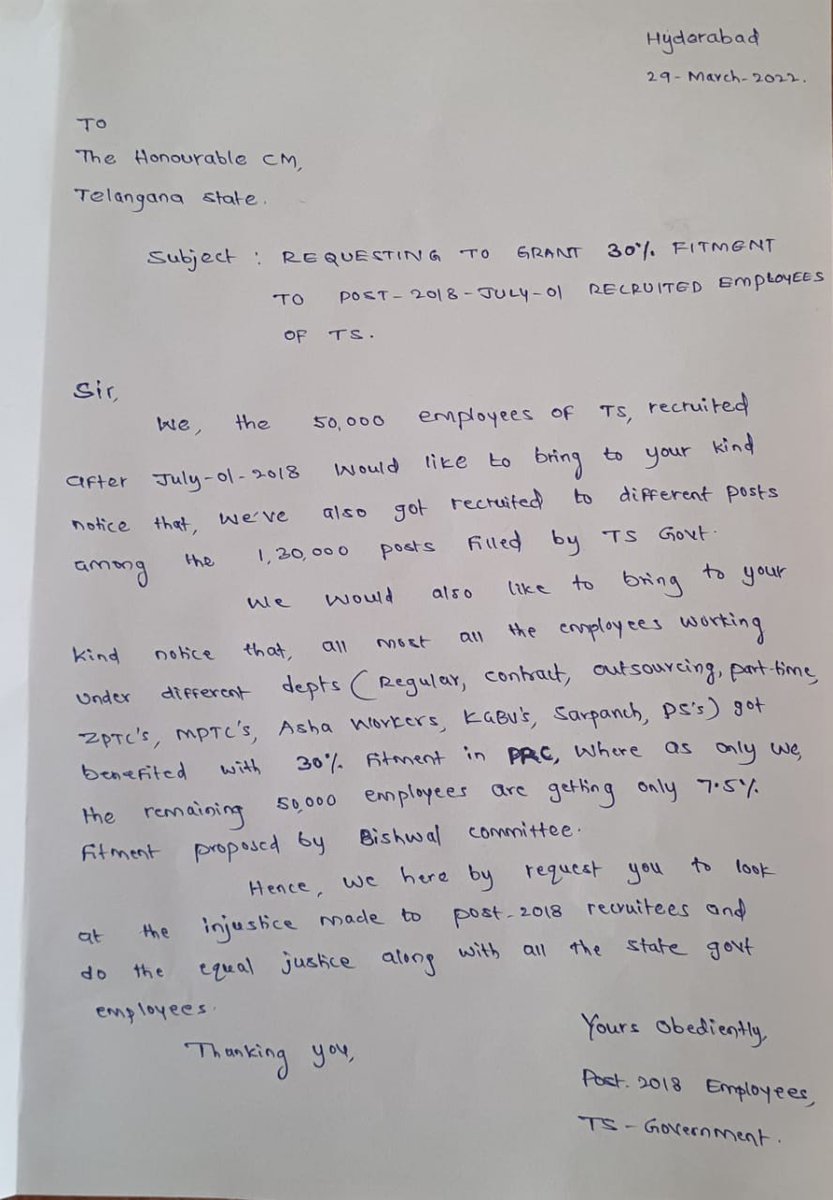 Hyderabad
29-March-2022.
To
The Honourable CM,
Telangana state.
Subject : REQUESTING TO GRANT 30% FITMENT
TO POST-2018-JULY-01 RECRUITED EMPLOYEES
OF TS.
Sir,
We, the 50,000 employees of TS, recruited
after July-01-2018 would like to bring to your kind
notice that, we've also got recruited to different posts
among the 1,30,000 posts filled by TS Govt.
We would also like to bring to your
kind notice that, all most all the employees working
under different depts (Regular, contract, outsourcing, part-time,
ZPTC's, MPTC's, Asha workers, KGBV's, Sarpanch, PS's) got
benefited with 30% fitment in PRC, where as only we,
the remaining 50,000 employees are getting only 7.5%
fitment proposed by Bishwal committee.
Hence, we here by request you to look
at the injustice made to post-2018 recruitees and
do the equal justice along with all the state govt
employees.
Thanking you,
Yours Obediently,
Post. 2018 Employees,
TS - Government.